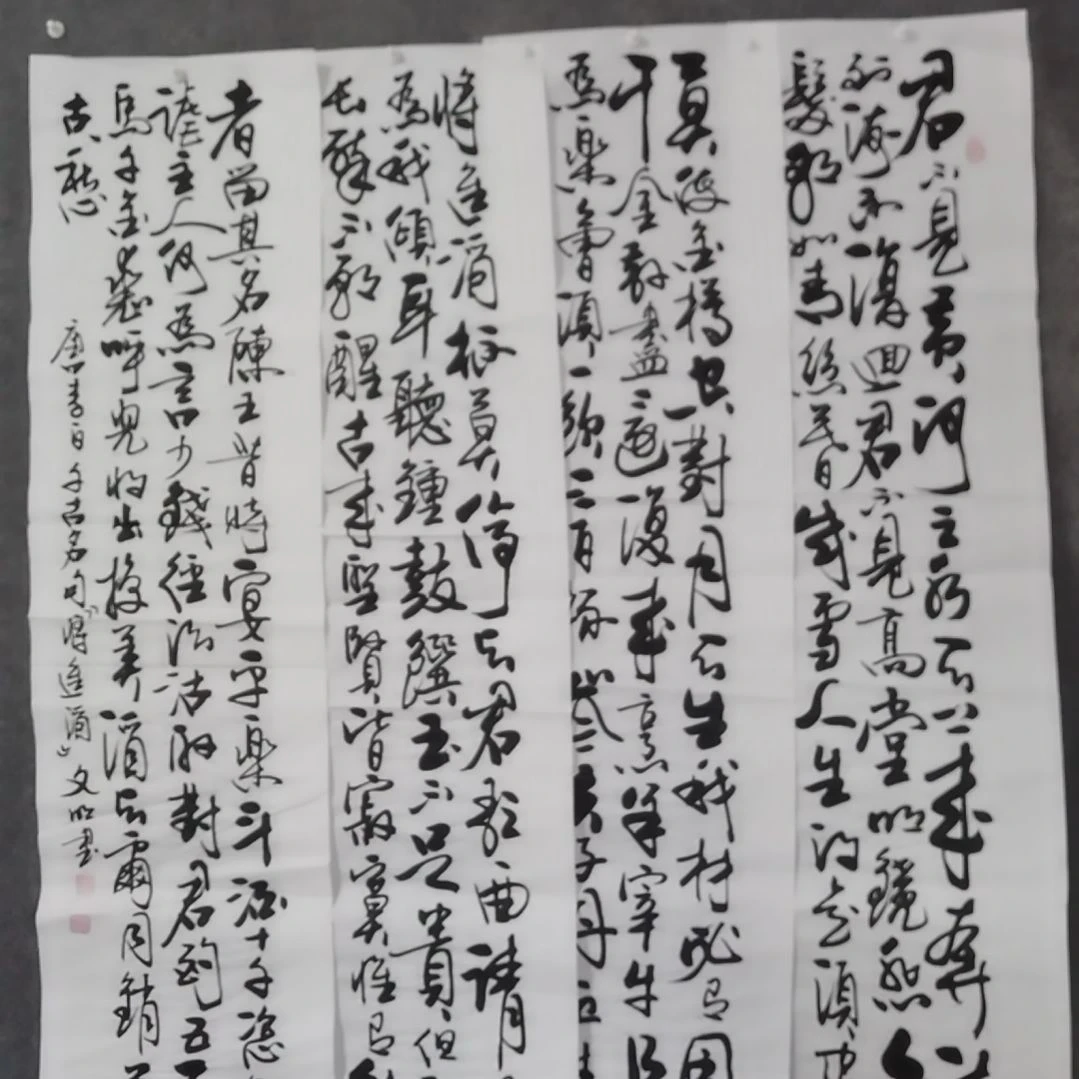 君不見黃河之水天上來奔
到海不復迴君不見高堂明鏡悲白
髮朝如青絲暮成雪人生得意須
莫使金樽空對月天生我材必有用
千金散盡還復來烹羊宰牛且
為樂會須一飲三百杯岑夫子丹丘生
將進酒杯莫停與君歌一曲請
為我傾耳聽鐘鼓饌玉不足貴但
長醉不願醒古來聖賢皆寂寞惟有
者留其名陳王昔時宴平樂斗酒十千恣
謔主人何為言少錢徑須沽取對君酌五
馬千金裘呼兒將出換美酒與爾同銷萬
古愁
唐李白千古名句《將進酒》文明書